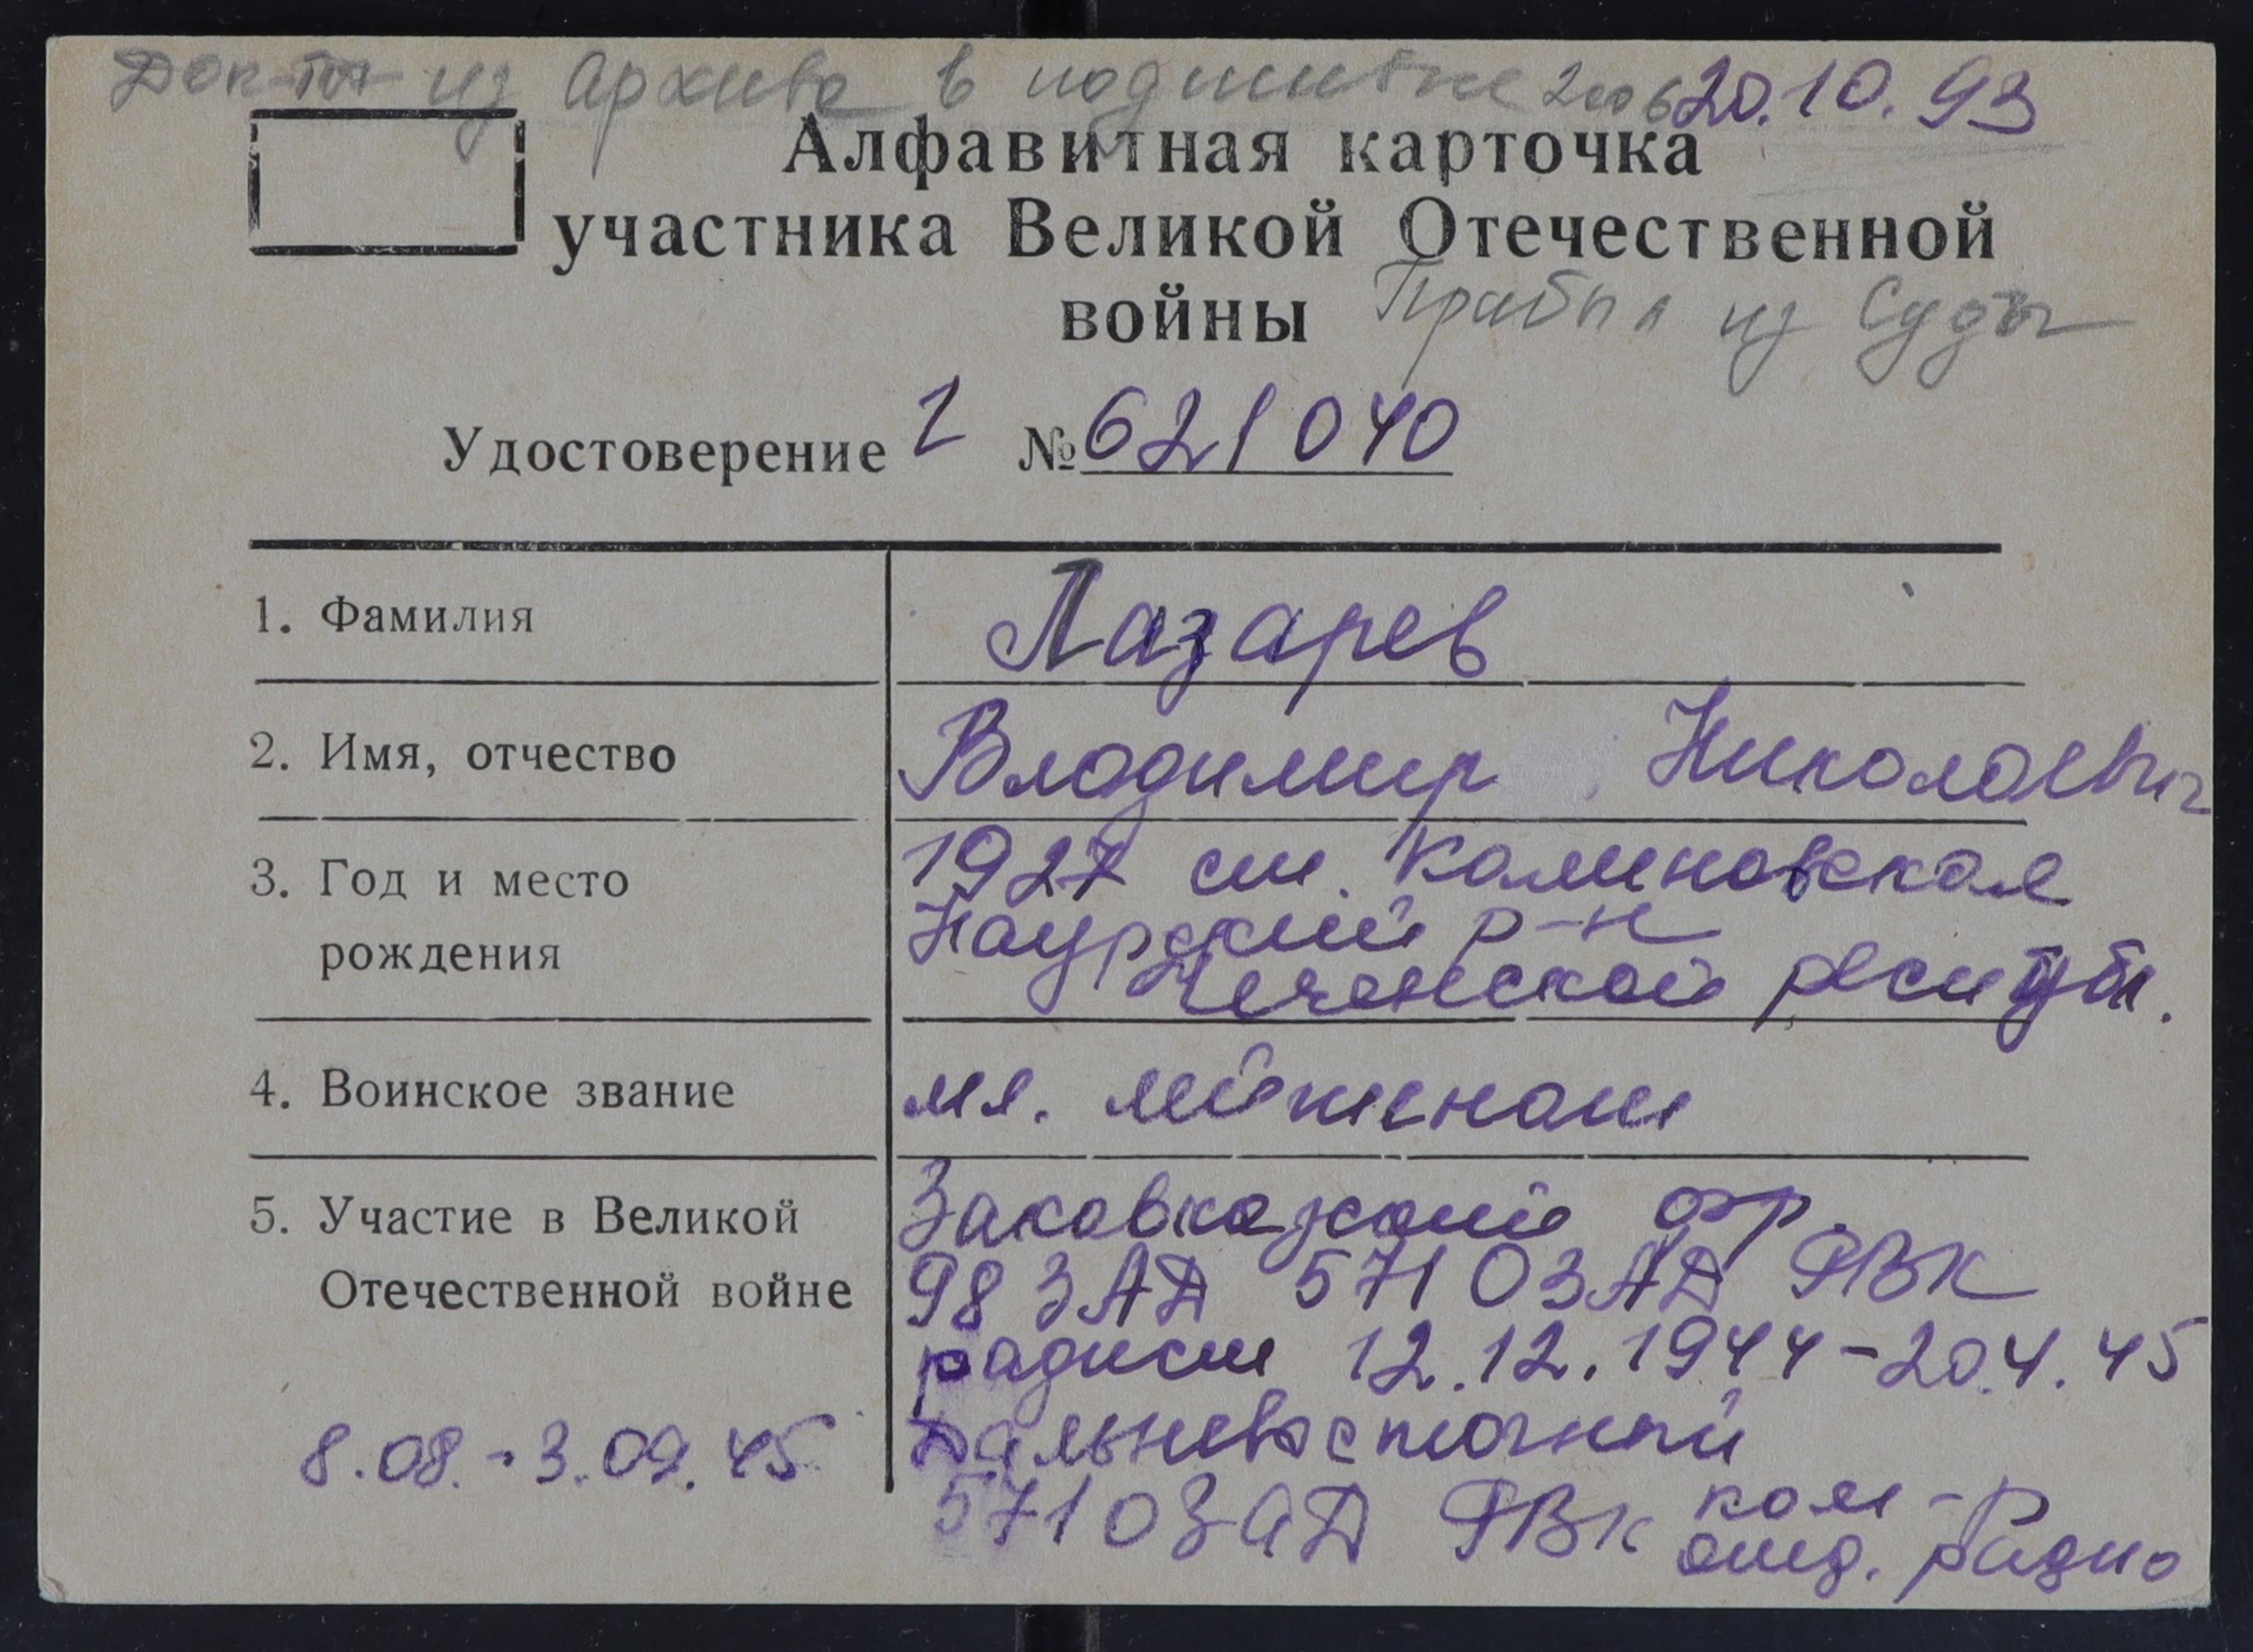 Док-ты из Архива в подшивке 2006 20.10.93
Алфавитная карточка
участника Великой Отечественной
войны Прибыл из
Удостоверение Г № 621040
1. Фамилия Лазарев
2. Имя, отчество Владимир Николаевич
3. Год и место рождения 1927 ст. Калиновская
Наурский р-н
Чеченской республ.
4. Воинское звание мл. лейтенант
5. Участие в Великой Отечественной войне Закавказский фр.
98 ЗАД 571 ОЗАД РВК
радист 12.12.1944-20.4.45
8.08.-3.09.45 Дальневосточный
571 ОЗАД РВК ком-р
отд. радио